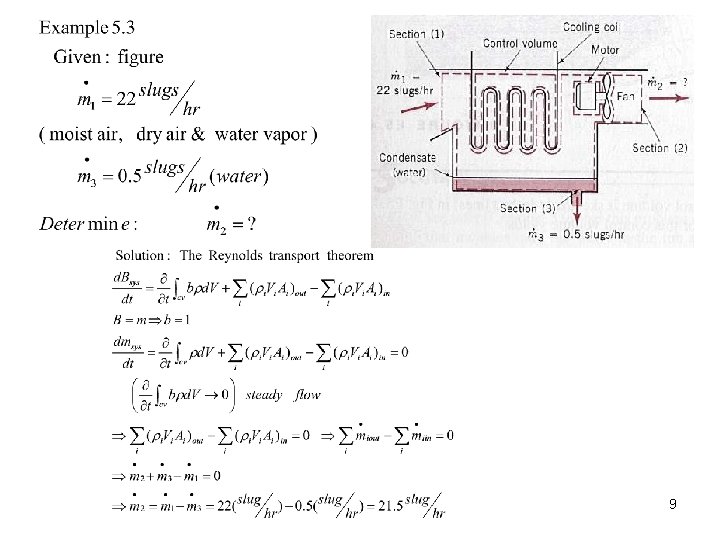 Example 5.3
Given : figure
ṁ1 = 22 slugs/hr
( moist air, dry air & water vapor )
ṁ3 = 0.5 slugs/hr (water)
Deter min e : ṁ2 = ?
Section (1)
Control volume
Cooling coil
Motor
ṁ1 =
22 slugs/hr
ṁ2 = ?
Fan
Section (2)
Condensate
(water)
Section (3)
ṁ3 = 0.5 slugs/hr
Solution : The Reynolds transport theorem
dBsys/dt = ∂/∂t ∫cv bρdV + ∑i (ρiViAi)out − ∑i (ρiViAi)in
B = m ⇒ b = 1
dmsys/dt = ∂/∂t ∫cv ρdV + ∑i (ρiViAi)out − ∑i (ρiViAi)in = 0
(∂/∂t ∫cv bρdV → 0) steady flow
⇒ ∑i (ρiViAi)out − ∑i (ρiViAi)in = 0 ⇒ ∑i ṁiout − ∑i ṁiin = 0
⇒ ṁ2 + ṁ3 − ṁ1 = 0
⇒ ṁ2 = ṁ1 − ṁ3 = 22(slug/hr) − 0.5(slug/hr) = 21.5 slug/hr
9